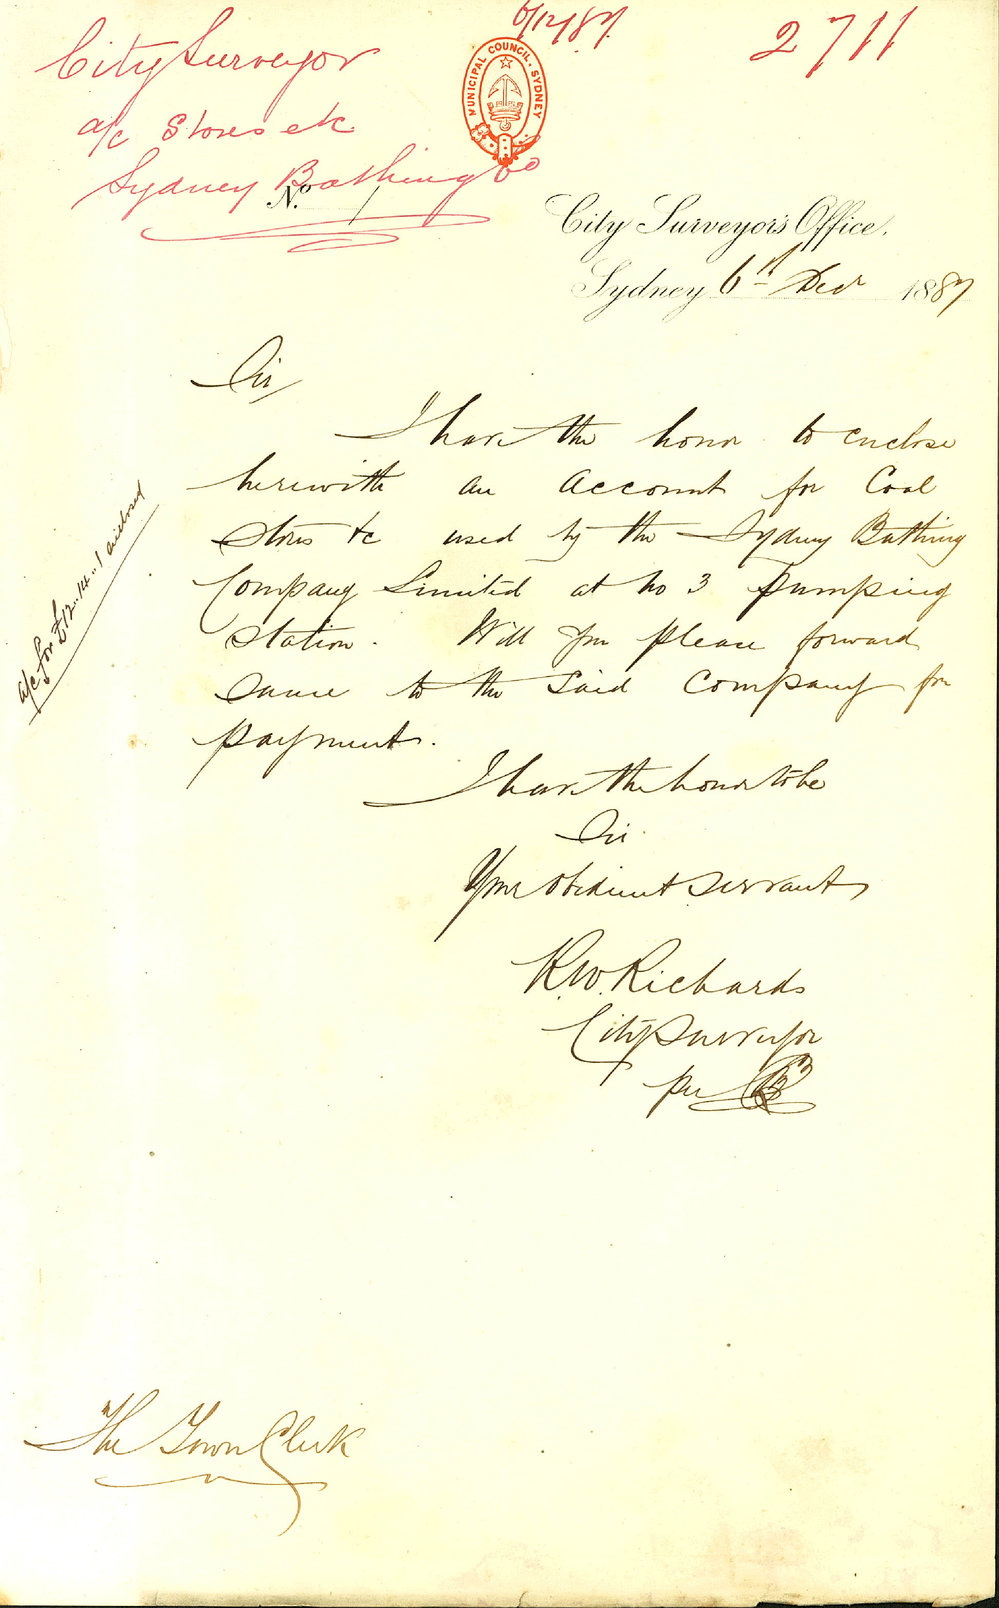 6/12/87.
2711
City Surveyor
a/c Stores etc
Sydney Bathing Co
MUNICIPAL COUNCIL. SYDNEY
No. 1
City Surveyor's Office,
Sydney 6th Decr 1887
Sir
I have the honor to enclose
herewith an Account for Coal
stores &c used by the Sydney Bathing
Company Limited at No 3 Pumping
Station. Will you please forward
same to the said Company for
payment.
a/c for £12..14..1 enclosed
I have the honor to be
Sir
Your obedient servant
R.W. Richards
City Surveyor
per
The Town Clerk